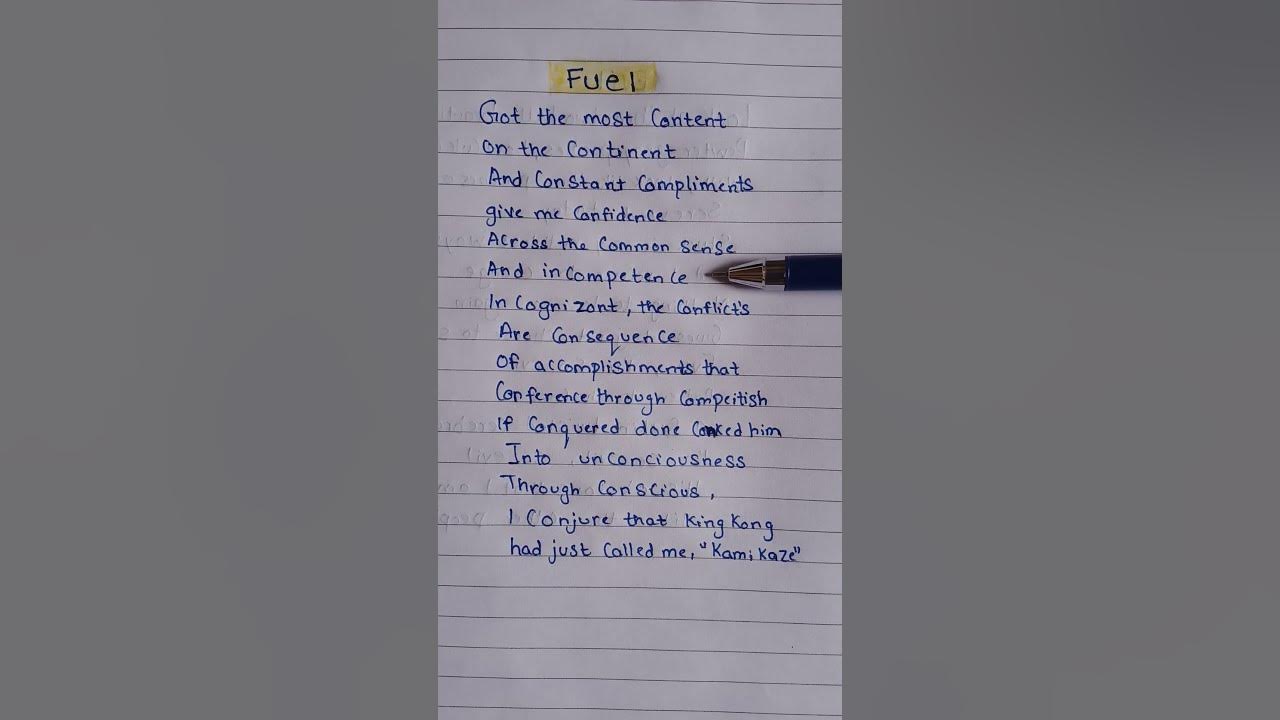 Fuel
Got the most Content
on the Continent
And Constant Compliments
give me Confidence
Across the Common Sense
And incompetence
In Cognizont, the Conflict's
Are Consequence
Of accomplishments that
Conference through Compeitish
If Conquered done Conked him
Into unconciousness
Through Conscious,
I Conjure that King Kong
had just Called me, "Kamikaze"